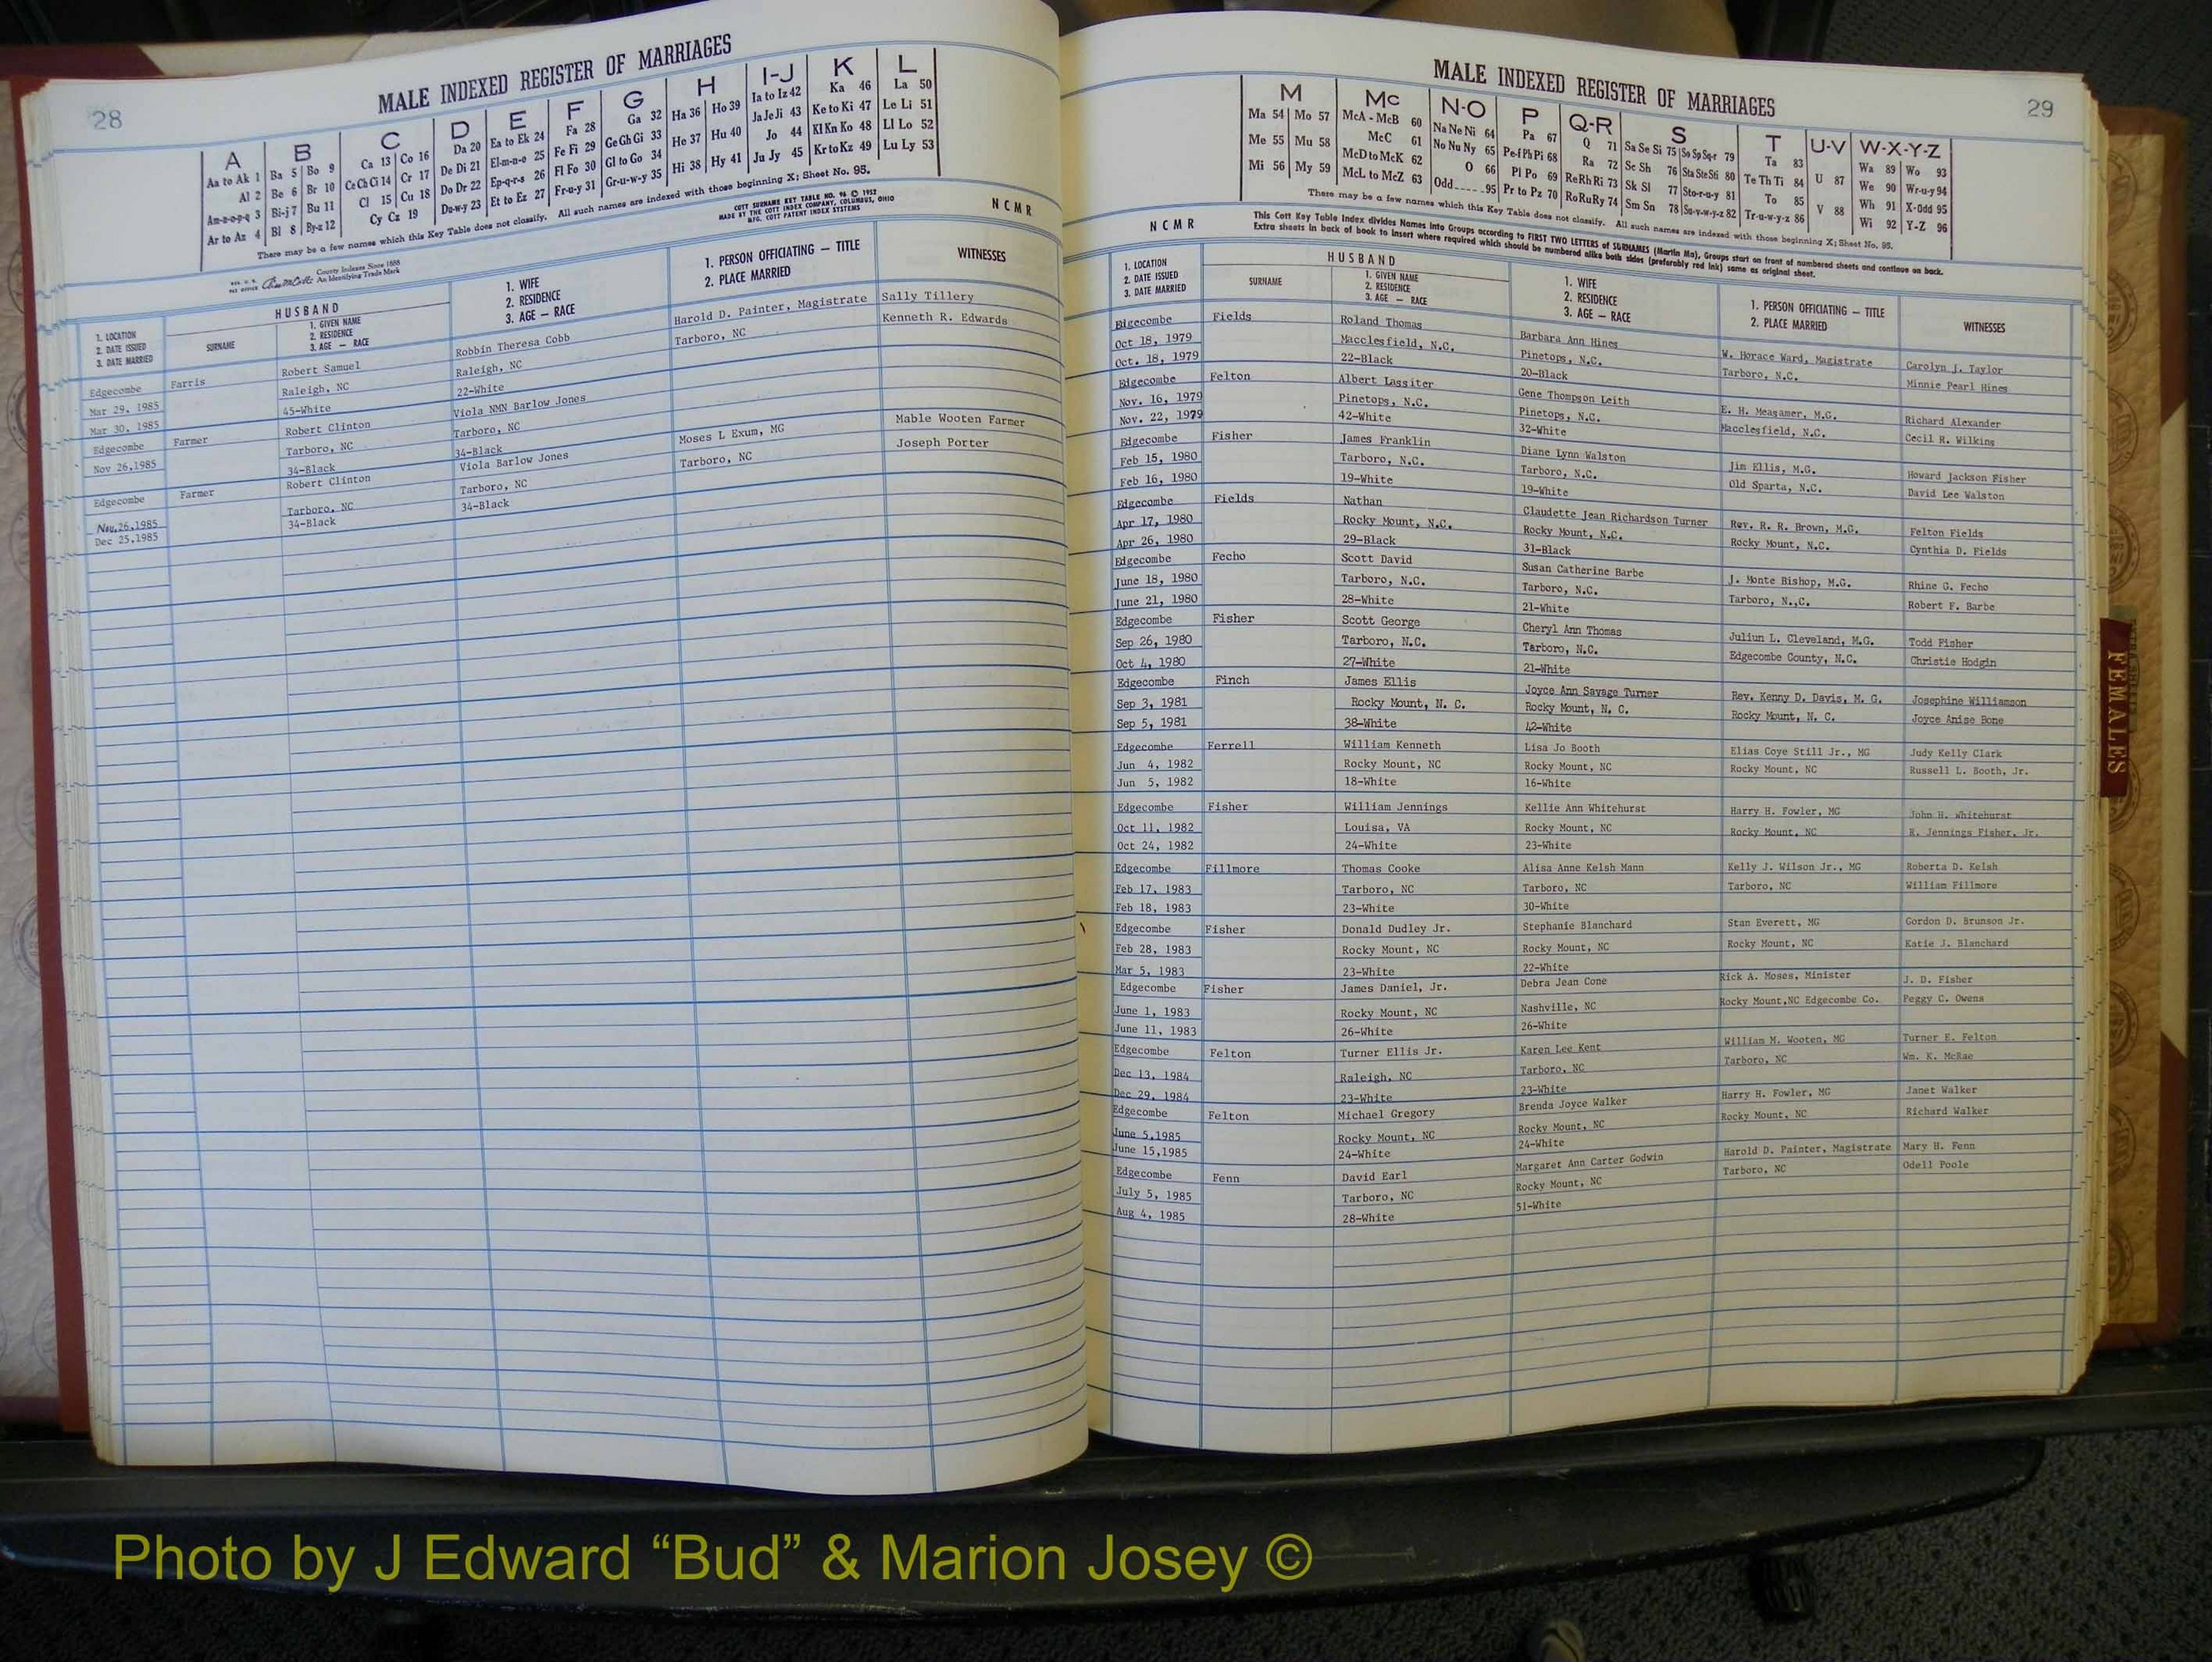 28
MALE INDEXED REGISTER OF MARRIAGES
A B C D E F G H I-J K L
Aa to Ak 1 Ba 5 Bo 9 Ca 13 Co 16 Da 20 Ea to Ek 24 Fa 28 Ga 32 Ha 36 Ho 39 Ia to Iz 42 Ka 46 La 50
Al 2 Be 6 Br 10 Ce Ch Ci 14 Cr 17 De Di 21 El-m-n-o 25 Fe Fi 29 Ge Gh Gi 33 He 37 Hu 40 Ja Je Ji 43 Ke to Ki 47 Le Li 51
Am-n-o-p-q 3 Bi-j 7 Bu 11 Cl 15 Cu 18 Do Dr 22 Ep-q-r-s 26 Fl Fo 30 Gl to Go 34 Hi 38 Hy 41 Jo 44 Kl Kn Ko 48 Ll Lo 52
Ar to Az 4 Bl 8 By-z 12 Cy Cz 19 Du-w-y 23 Et to Ez 27 Fr-u-y 31 Gr-u-w-y 35 Ju Jy 45 Kr to Kz 49 Lu Ly 53
There may be a few names which this Key Table does not classify. All such names are indexed with those beginning X; Sheet No. 95.
COTT SURNAME KEY TABLE NO. 96 © 1952
MADE BY THE COTT INDEX COMPANY, COLUMBUS, OHIO
MFG. COTT PATENT INDEX SYSTEMS
NCMR
County Indexes Since 1888
An Identifying Trade Mark
1. LOCATION
2. DATE ISSUED
3. DATE MARRIED
HUSBAND
SURNAME
1. GIVEN NAME
2. RESIDENCE
3. AGE — RACE
1. WIFE
2. RESIDENCE
3. AGE — RACE
1. PERSON OFFICIATING — TITLE
2. PLACE MARRIED
WITNESSES
Edgecombe Farris Robert Samuel Robbin Theresa Cobb Harold D. Painter, Magistrate Sally Tillery
Mar 29, 1985 Raleigh, NC Raleigh, NC Tarboro, NC Kenneth R. Edwards
Mar 30, 1985 45-White 22-White
Edgecombe Farmer Robert Clinton Viola NMN Barlow Jones
Nov 26,1985 Tarboro, NC Tarboro, NC
34-Black 34-Black
Edgecombe Farmer Robert Clinton Viola Barlow Jones Moses L Exum, MG Mable Wooten Farmer
Nov.26,1985 Tarboro, NC Tarboro, NC Tarboro, NC Joseph Porter
Dec 25,1985 34-Black 34-Black
29
MALE INDEXED REGISTER OF MARRIAGES
M Mc N-O P Q-R S T U-V W-X-Y-Z
Ma 54 Mo 57 McA - McB 60 Na Ne Ni 64 Pa 67 Q 71 Sa Se Si 75 So Sp Sq-r 79 Ta 83 U 87 Wa 89 Wo 93
Me 55 Mu 58 McC 61 No Nu Ny 65 Pe-f Ph Pi 68 Ra 72 Sc Sh 76 Sta Ste Sti 80 Te Th Ti 84 V 88 We 90 Wr-u-y 94
Mi 56 My 59 McD to McK 62 O 66 Pl Po 69 Re Rh Ri 73 Sk Sl 77 Sto-r-u-y 81 To 85 Wh 91 X-Odd 95
McL to McZ 63 Odd 95 Pr to Pz 70 Ro Ru Ry 74 Sm Sn 78 Su-v-w-y-z 82 Tr-u-w-y-z 86 Wi 92 Y-Z 96
There may be a few names which this Key Table does not classify. All such names are indexed with those beginning X; Sheet No. 95.
NCMR
This Cott Key Table Index divides Names into Groups according to FIRST TWO LETTERS of SURNAMES (Martin Ma), Groups start on front of numbered sheets and continue on back.
Extra sheets in back of book to insert where required which should be numbered alike both sides (preferably red ink) same as original sheet.
1. LOCATION
2. DATE ISSUED
3. DATE MARRIED
HUSBAND
SURNAME
1. GIVEN NAME
2. RESIDENCE
3. AGE — RACE
1. WIFE
2. RESIDENCE
3. AGE — RACE
1. PERSON OFFICIATING — TITLE
2. PLACE MARRIED
WITNESSES
Edgecombe Fields Roland Thomas Barbara Ann Hines W. Horace Ward, Magistrate Carolyn J. Taylor
Oct 18, 1979 Macclesfield, N.C. Pinetops, N.C. Tarboro, N.C. Minnie Pearl Hines
Oct. 18, 1979 22-Black 20-Black
Edgecombe Felton Albert Lassiter Gene Thompson Leith E. H. Measamer, M.G. Richard Alexander
Nov. 16, 1979 Pinetops, N.C. Pinetops, N.C. Macclesfield, N.C. Cecil R. Wilkins
Nov. 22, 1979 42-White 32-White
Edgecombe Fisher James Franklin Diane Lynn Walston Jim Ellis, M.G. Howard Jackson Fisher
Feb 15, 1980 Tarboro, N.C. Tarboro, N.C. Old Sparta, N.C. David Lee Walston
Feb 16, 1980 19-White 19-White
Edgecombe Fields Nathan Claudette Jean Richardson Turner Rev. R. R. Brown, M.G. Felton Fields
Apr 17, 1980 Rocky Mount, N.C. Rocky Mount, N.C. Rocky Mount, N.C. Cynthia D. Fields
Apr 26, 1980 29-Black 31-Black
Edgecombe Fecho Scott David Susan Catherine Barbe J. Monte Bishop, M.G. Rhine G. Fecho
June 18, 1980 Tarboro, N.C. Tarboro, N.C. Tarboro, N.,C. Robert F. Barbe
June 21, 1980 28-White 21-White
Edgecombe Fisher Scott George Cheryl Ann Thomas Juliun L. Cleveland, M.G. Todd Fisher
Sep 26, 1980 Tarboro, N.C. Tarboro, N.C. Edgecombe County, N.C. Christie Hodgin
Oct 4, 1980 27-White 21-White
Edgecombe Finch James Ellis Joyce Ann Savage Turner Rev. Kenny D. Davis, M. G. Josephine Williamson
Sep 3, 1981 Rocky Mount, N. C. Rocky Mount, N. C. Rocky Mount, N. C. Joyce Anise Bone
Sep 5, 1981 38-White 42-White
Edgecombe Ferrell William Kenneth Lisa Jo Booth Elias Coye Still Jr., MG Judy Kelly Clark
Jun 4, 1982 Rocky Mount, NC Rocky Mount, NC Rocky Mount, NC Russell L. Booth, Jr.
Jun 5, 1982 18-White 16-White
Edgecombe Fisher William Jennings Kellie Ann Whitehurst Harry H. Fowler, MG John H. Whitehurst
Oct 11, 1982 Louisa, VA Rocky Mount, NC Rocky Mount, NC R. Jennings Fisher, Jr.
Oct 24, 1982 24-White 23-White
Edgecombe Fillmore Thomas Cooke Alisa Anne Kelsh Mann Kelly J. Wilson Jr., MG Roberta D. Kelsh
Feb 17, 1983 Tarboro, NC Tarboro, NC Tarboro, NC William Fillmore
Feb 18, 1983 23-White 30-White
Edgecombe Fisher Donald Dudley Jr. Stephanie Blanchard Stan Everett, MG Gordon D. Brunson Jr.
Feb 28, 1983 Rocky Mount, NC Rocky Mount, NC Rocky Mount, NC Katie J. Blanchard
Mar 5, 1983 23-White 22-White
Edgecombe Fisher James Daniel, Jr. Debra Jean Cone Rick A. Moses, Minister J. D. Fisher
June 1, 1983 Rocky Mount, NC Nashville, NC Rocky Mount,NC Edgecombe Co. Peggy C. Owens
June 11, 1983 26-White 26-White
Edgecombe Felton Turner Ellis Jr. Karen Lee Kent William M. Wooten, MG Turner E. Felton
Dec 13, 1984 Raleigh, NC Tarboro, NC Tarboro, NC Wm. K. McRae
Dec 29, 1984 23-White 23-White
Edgecombe Felton Michael Gregory Brenda Joyce Walker Harry H. Fowler, MG Janet Walker
June 5,1985 Rocky Mount, NC Rocky Mount, NC Rocky Mount, NC Richard Walker
June 15,1985 24-White 24-White
Edgecombe Fenn David Earl Margaret Ann Carter Godwin Harold D. Painter, Magistrate Mary H. Fenn
July 5, 1985 Tarboro, NC Rocky Mount, NC Tarboro, NC Odell Poole
Aug 4, 1985 28-White 51-White
FEMALES
Photo by J Edward “Bud” & Marion Josey ©